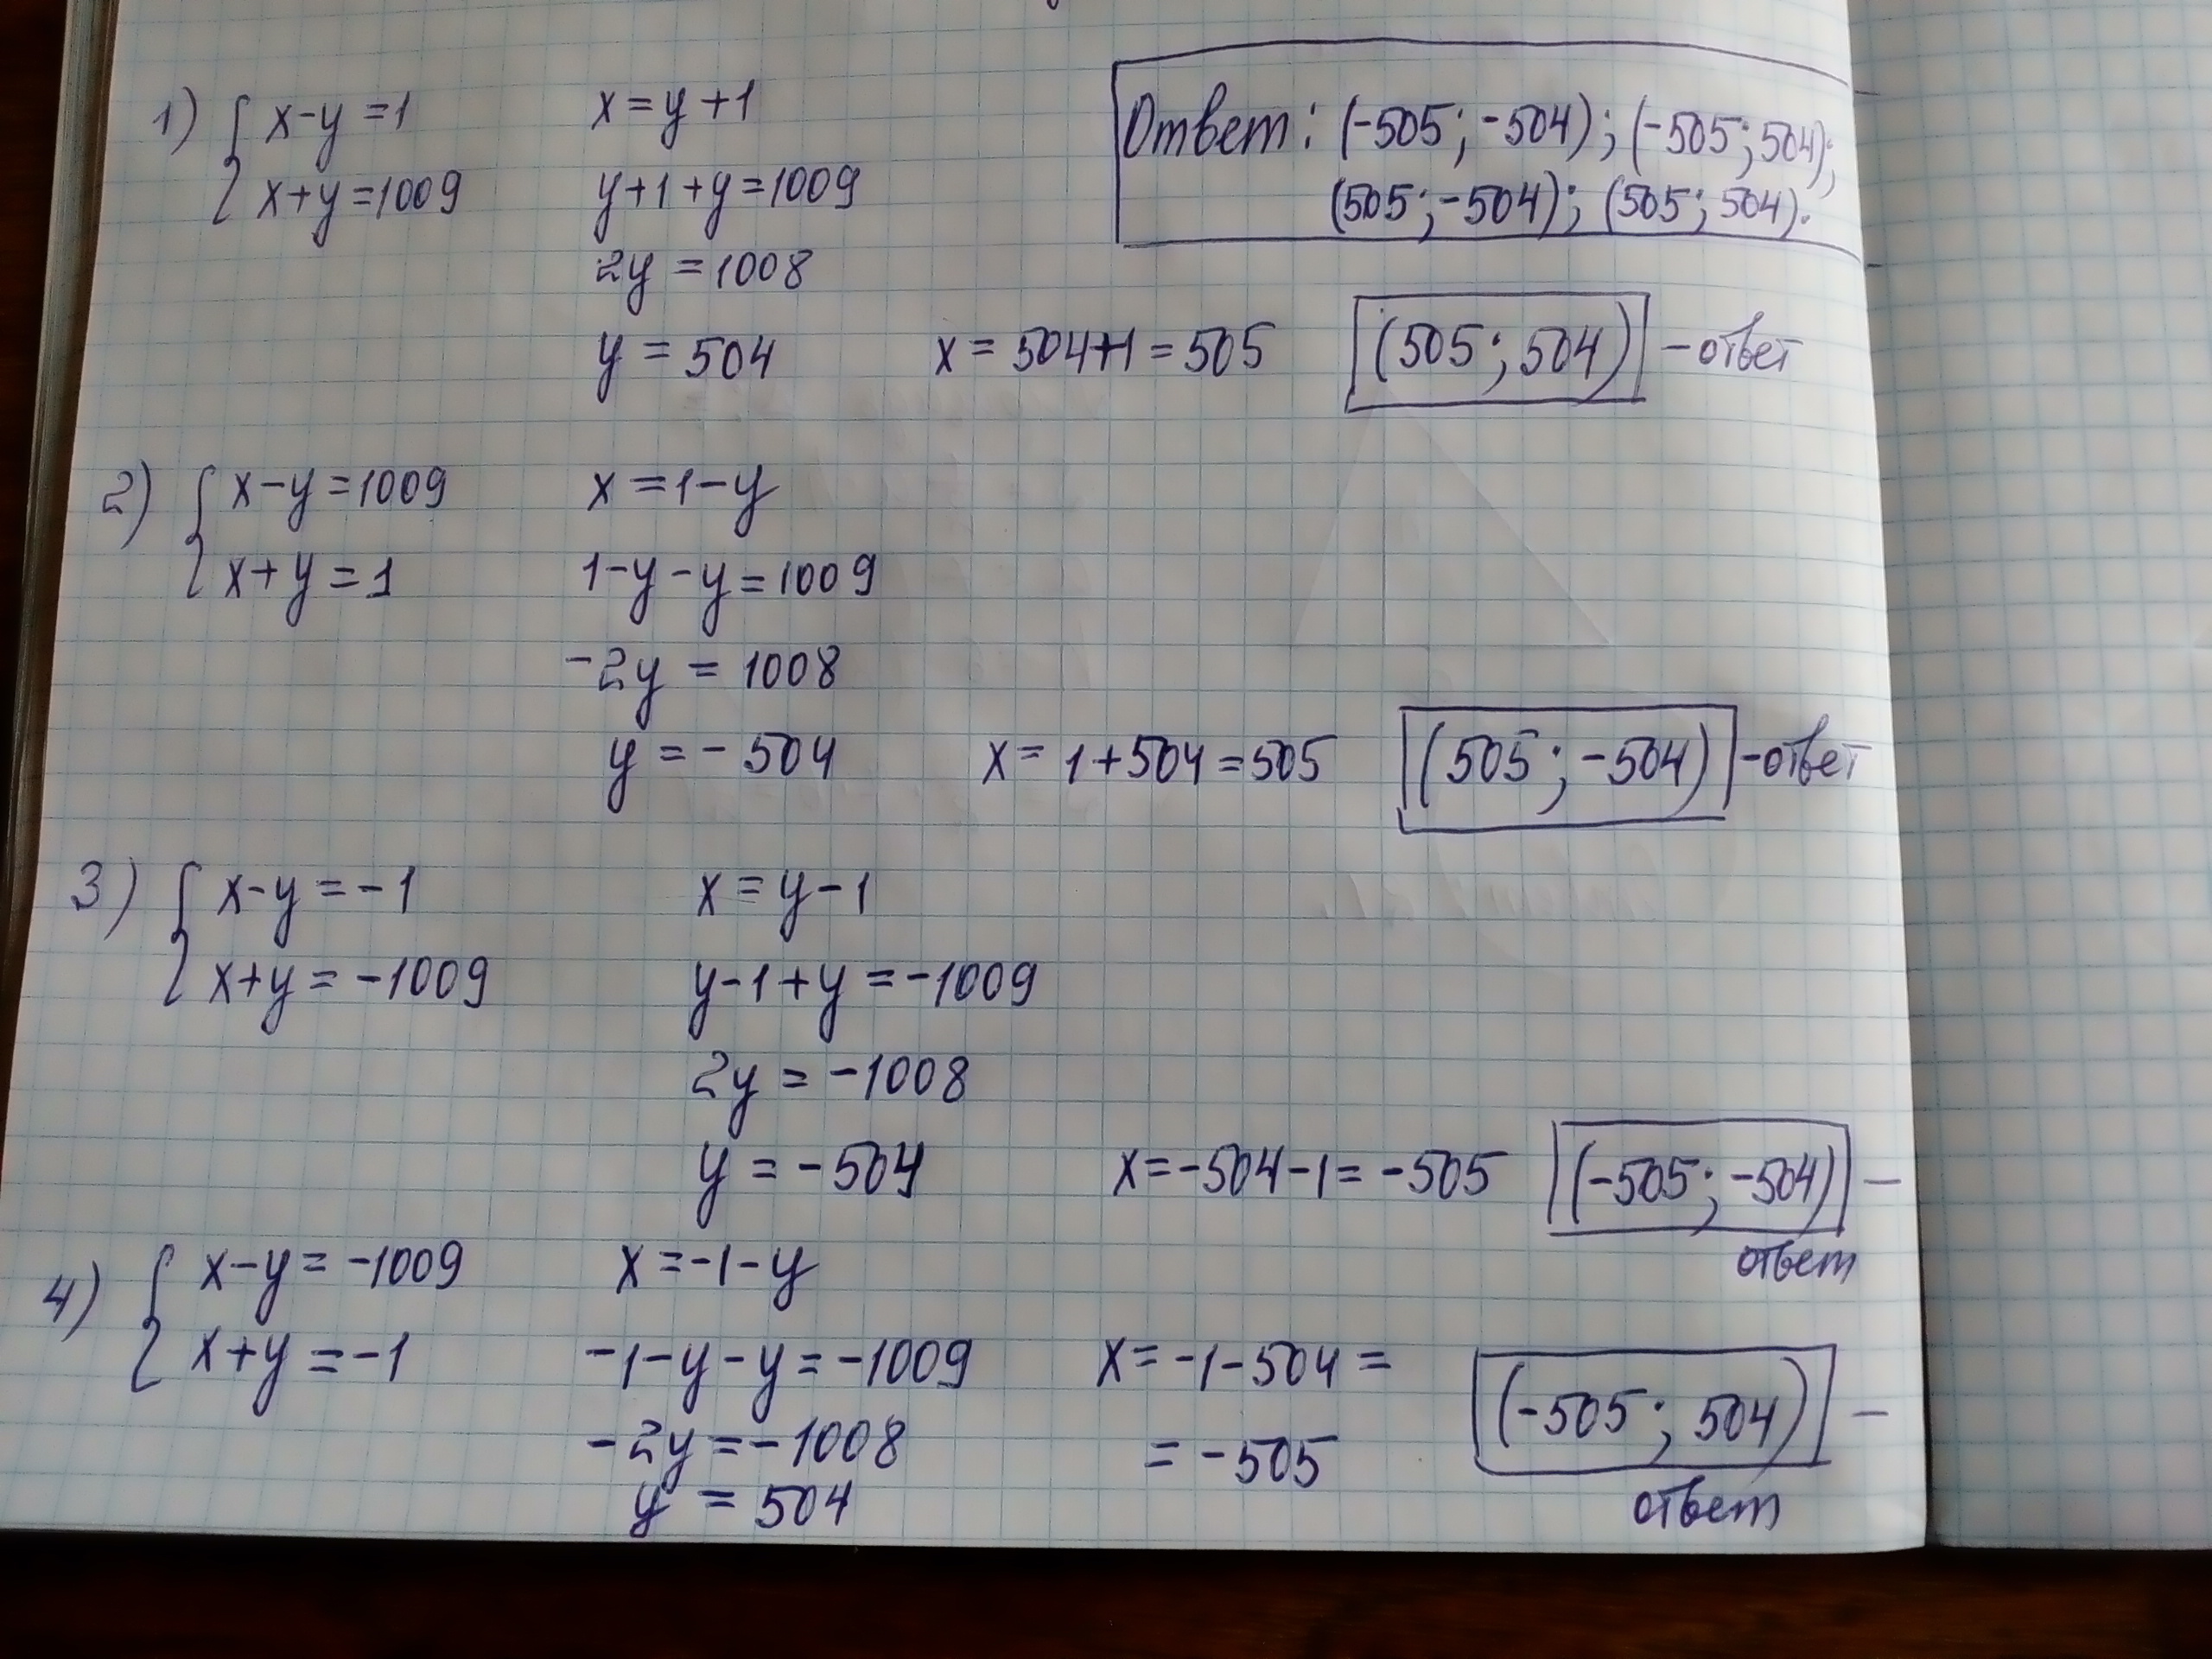 1) { x-y=1 x=y+1 Ответ: (-505; -504); (-505; 504);
x+y=1009 y+1+y=1009 (505; -504); (505; 504).
2y=1008
y=504 x=504+1=505 (505; 504) - ответ
2) { x-y=1009 x=1-y
x+y=1 1-y-y=1009
-2y=1008
y=-504 x=1+504=505 (505; -504) - ответ
3) { x-y=-1 x=y-1
x+y=-1009 y-1+y=-1009
2y=-1008
y=-504 x=-504-1=-505 (-505; -504) -
ответ
4) { x-y=-1009 x=-1-y
x+y=-1 -1-y-y=-1009 x=-1-504=
-2y=-1008 =-505 (-505; 504) -
y=504 ответ